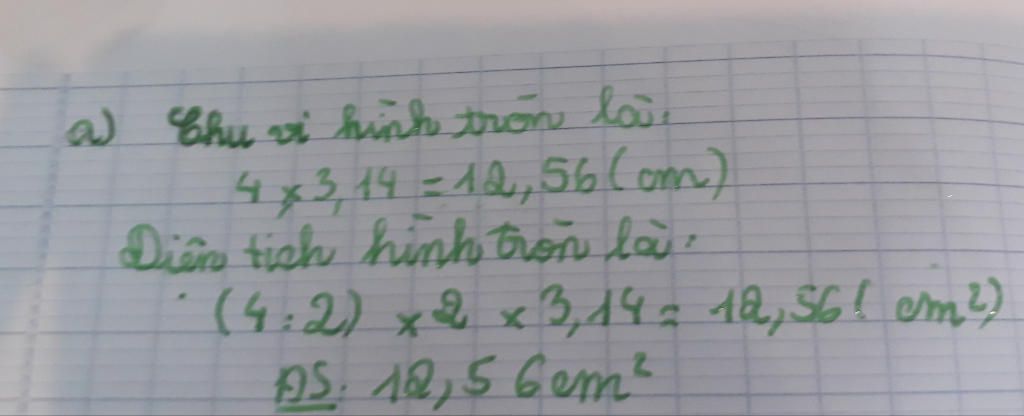 a) Chu vi hình tròn là:
4 x 3,14 = 12,56 (cm)
Diên tich hình tròn là:
(4 : 2) x 2 x 3,14 = 12,56 ( cm²)
ĐS: 12,56 cm²